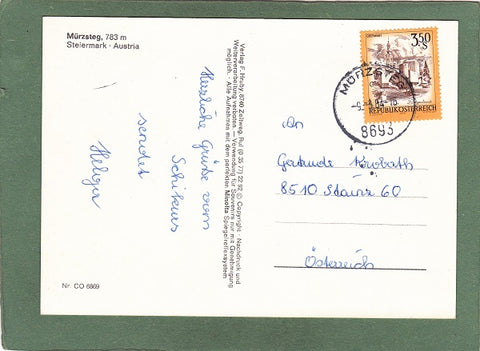 Mürzsteg, 783 m
Steiermark · Austria
Herzliche Grüße vom
Schikurs
sendet
Holger
Nr. CO 6869
Verlag F. Hruby, 8740 Zeltweg, Ruf (0 35 77) 22 92 © Copyright · Nachdruck und
Weiterverarbeitung verboten. — Verwendung für Souvenirs nur mit Genehmigung
möglich. · Alle Aufnahmen mit dem perfekten Minolta Spiegelreflexsystem.
3.50
S
REPUBLIK ÖSTERREICH
MÜRZSTEG
8693
An
Gertrude Krobath
8510 Stainz 60
Österreich